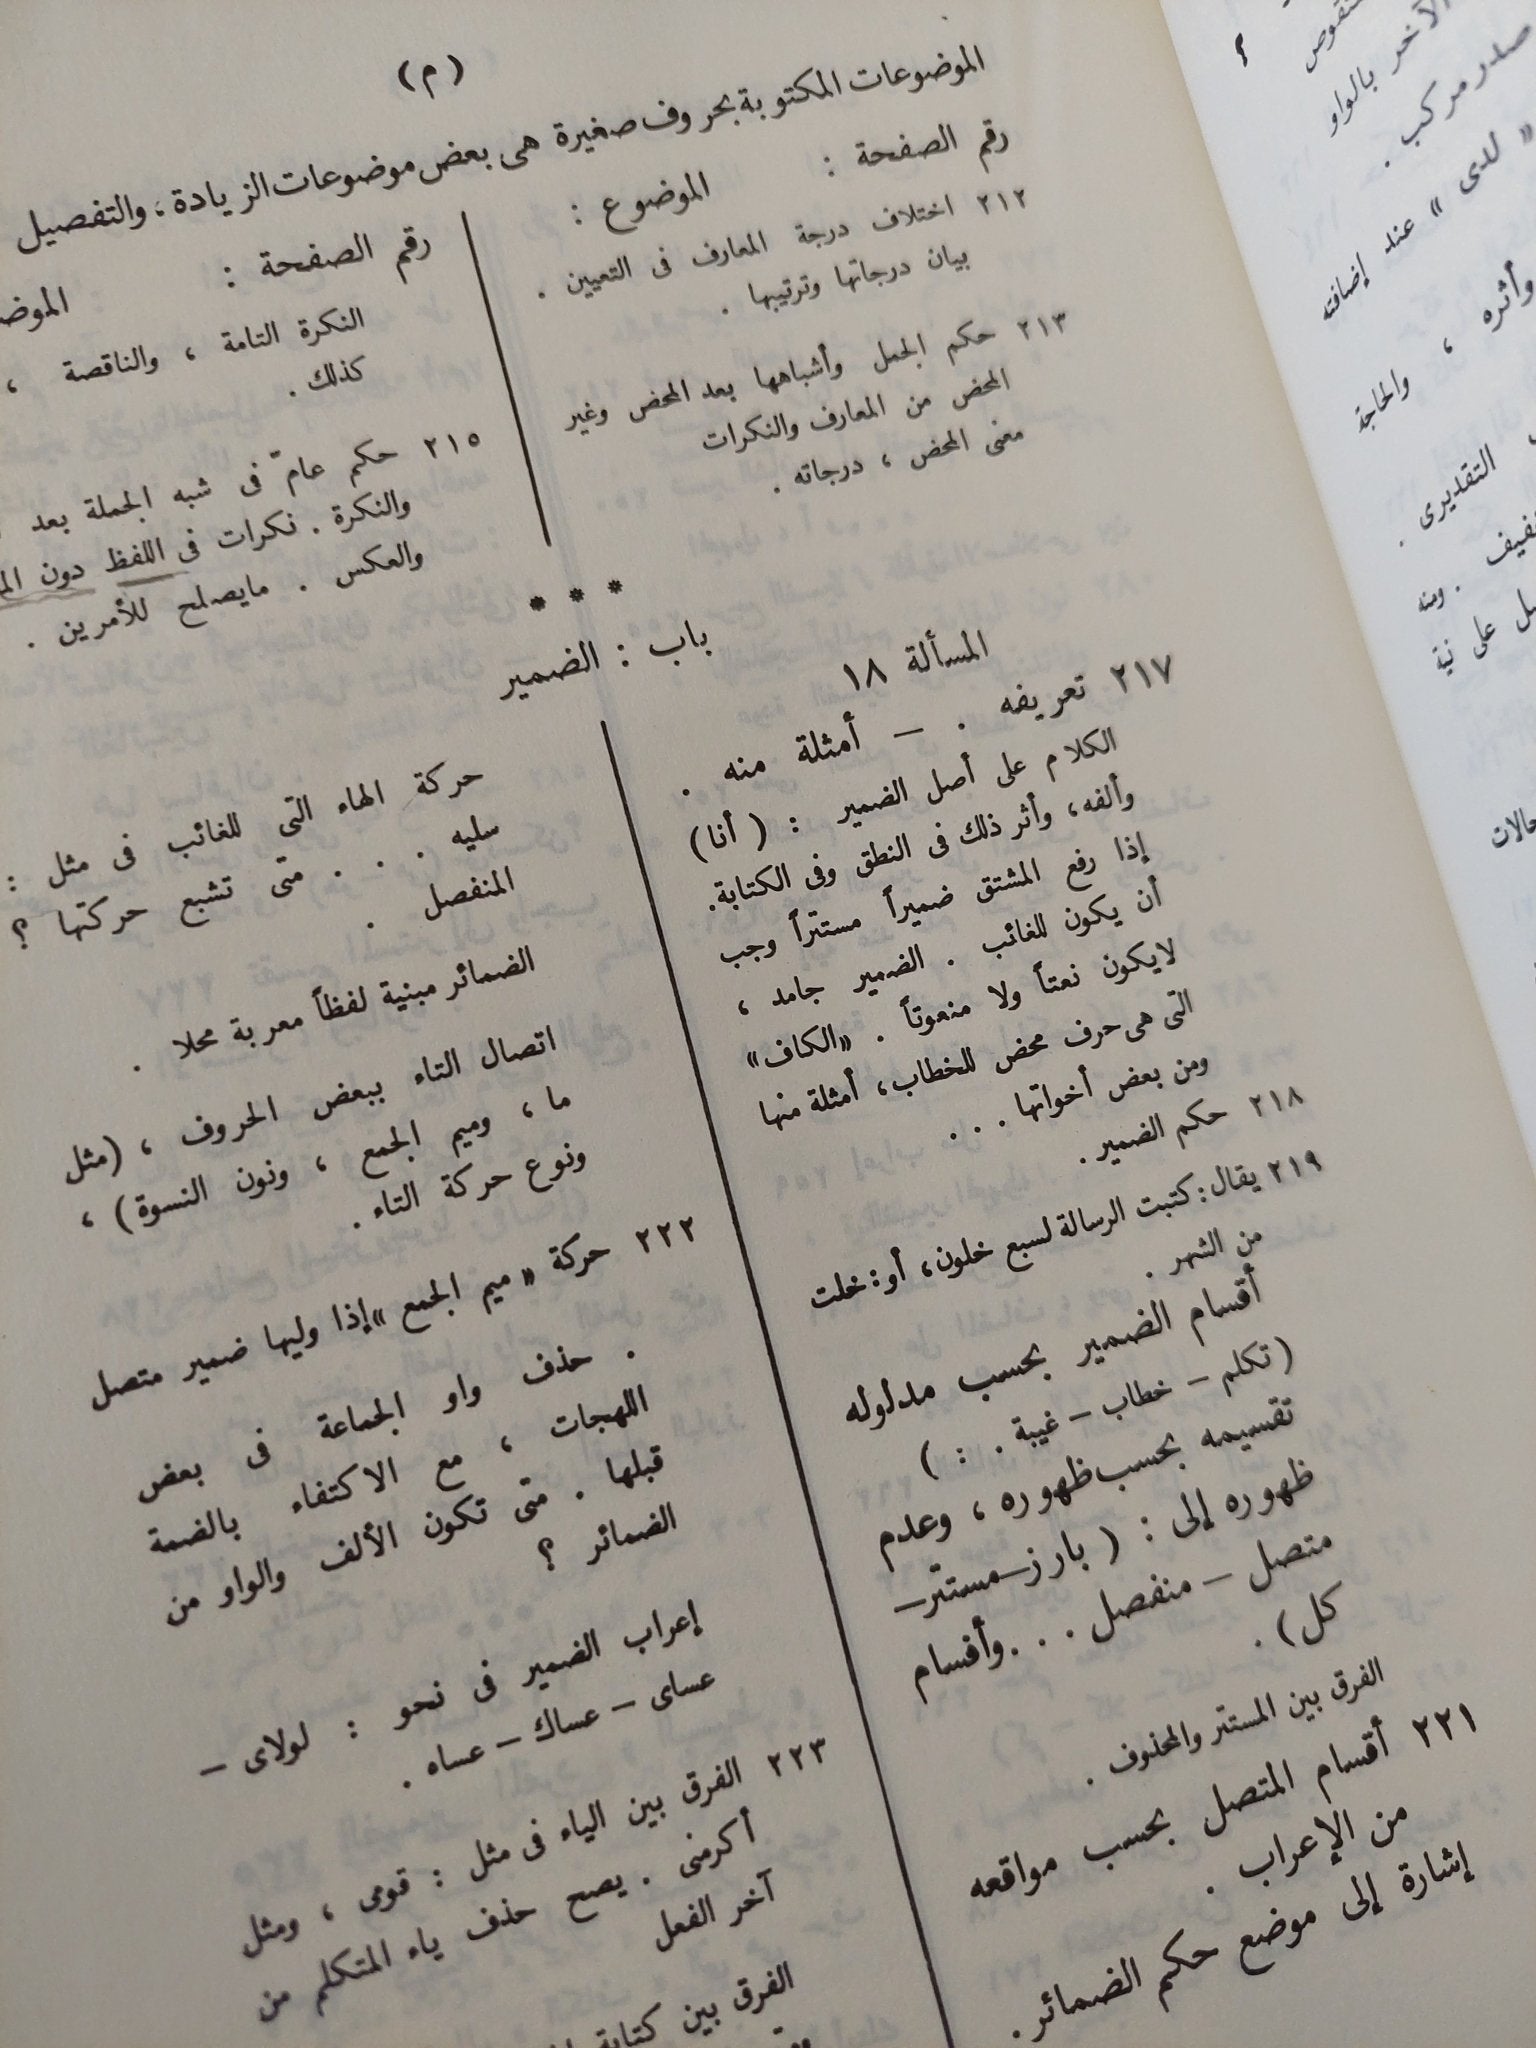 (م)
الموضوعات المكتوبة بحروف صغيرة هى بعض موضوعات الزيادة ، والتفصيل
رقم الصفحة : الموضوع :
٢١٢ اختلاف درجة المعارف فى التعيين .
بيان درجاتها وترتيبها .
٢١٣ حكم الجمل وأشباهها بعد المحض وغير
المحض من المعارف والنكرات
معنى المحض ، درجاته .
رقم الصفحة :
النكرة التامة ، والناقصة ،
كذلك .
٢١٥ حكم عامّ فى شبه الجملة بعد
والنكرة . نكرات فى اللفظ دون
والعكس . مايصلح للأمرين .
* * *
باب : الضمير
المسألة ١٨
٢١٧ تعريفه . – أمثلة منه .
الكلام على أصل الضمير : ( أنا )
وألفه ، وأثر ذلك فى النطق وفى الكتابة.
إذا رفع المشتق ضميراً مستتراً وجب
أن يكون للغائب . الضمير جامد ،
لايكون نعتاً ولا منعوتاً . «الكاف»
التى هى حرف محض للخطاب ، أمثلة منها
ومن بعض أخواتها . . .
٢١٨ حكم الضمير .
٢١٩ يقال : كتبت الرسالة لسبع خلون ، أو : خلت
من الشهر .
أقسام الضمير بحسب مدلوله
( تكلم – خطاب – غيبة . : )
تقسيمه بحسب ظهوره ، وعدم
ظهوره إلى : ( بارز – مستتر –
متصل – منفصل . . . وأقسام
كل ) .
الفرق بين المستتر والمحذوف .
٢٢١ أقسام المتصل بحسب مواقعه
من الإعراب .
إشارة إلى موضع حكم الضمائر .
حركة الهاء التى للغائب فى مثل :
سليه . . . متى تشبع حركتها ؟
المنفصل .
الضمائر مبنية لفظاً معربة محلا .
اتصال التاء ببعض الحروف ، (مثل
ما ، وميم الجمع ، ونون النسوة) ،
ونوع حركة التاء .
٢٢٢ حركة « ميم الجمع » إذا وليها ضمير متصل
. حذف واو الجماعة فى بعض
اللهجات ، مع الاكتفاء بالضمة
قبلها . متى تكون الألف والواو من
الضمائر ؟
إعراب الضمير فى نحو : لولاى –
عساى – عساك – عساه .
٢٢٣ الفرق بين الياء فى مثل : قومى ، ومثل
أكرمنى . يصح حذف ياء المتكلم من
آخر الفعل
الفرق بين كتابة
الآخر بالواو
صدر مركب .
« لدى » عند إضافته
وأثره ، والحاجة
التقديرى .
. ومنه
على نية